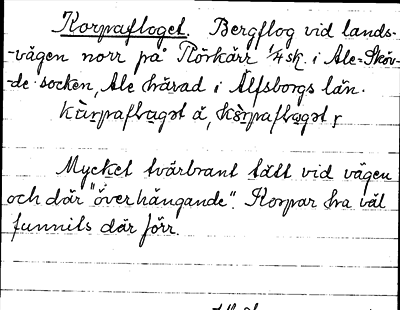 Korpafloget. Bergflog vid lands-
-vägen norr på Rörkärr 1/4 sk. i Ale-Sköv-
-de socken, Ale härad i Älfsborgs län.
Mycket tvärbrant tätt vid vägen
och där "överhängande". Korpar ha väl
funnits där förr.